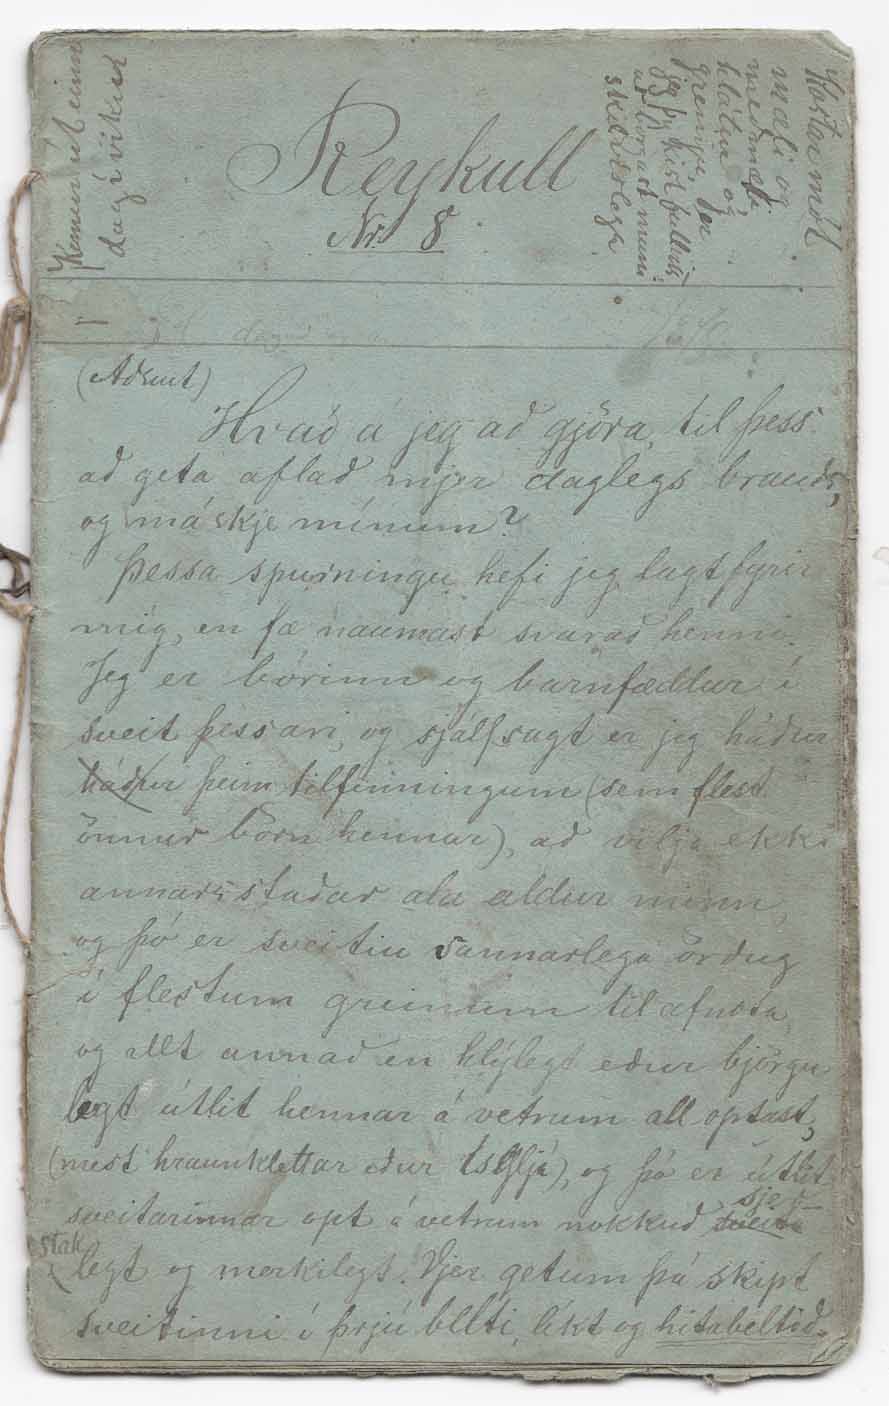 Kemur út einn
dag í viku
Reykull
Nr. 8
mæli og
meðmæli,
og
(Aðsent)
Hvað á jeg að gjöra, til þess
að geta aflað mjer daglegs brauðs,
og máskje mínum?
Þessa spurningu hefi jeg lagt fyrir
mig, en fæ naumast svarað henni.
Jeg er borinn og barnfæddur í
sveit þessari, og sjálfsagt er jeg háður
háður þeim tilfinningum (sem flest
önnur börn hennar), að vilja ekki
annarsstaðar ala aldur minn,
og þó er sveitin sannarlega örðug
í flestum greinum til afnota,
og allt annað en hlýlegt eður björgu
legt útlit hennar á vetrum all optast,
(mest hraunklettar eður ísgljá), og þó er útlit
sveitarinnar opt á vetrum nokkuð sjer-
stak
legt og merkilegt. Vjer getum þá skipt
sveitinni í þrjú belti, líkt og hitabeltið.